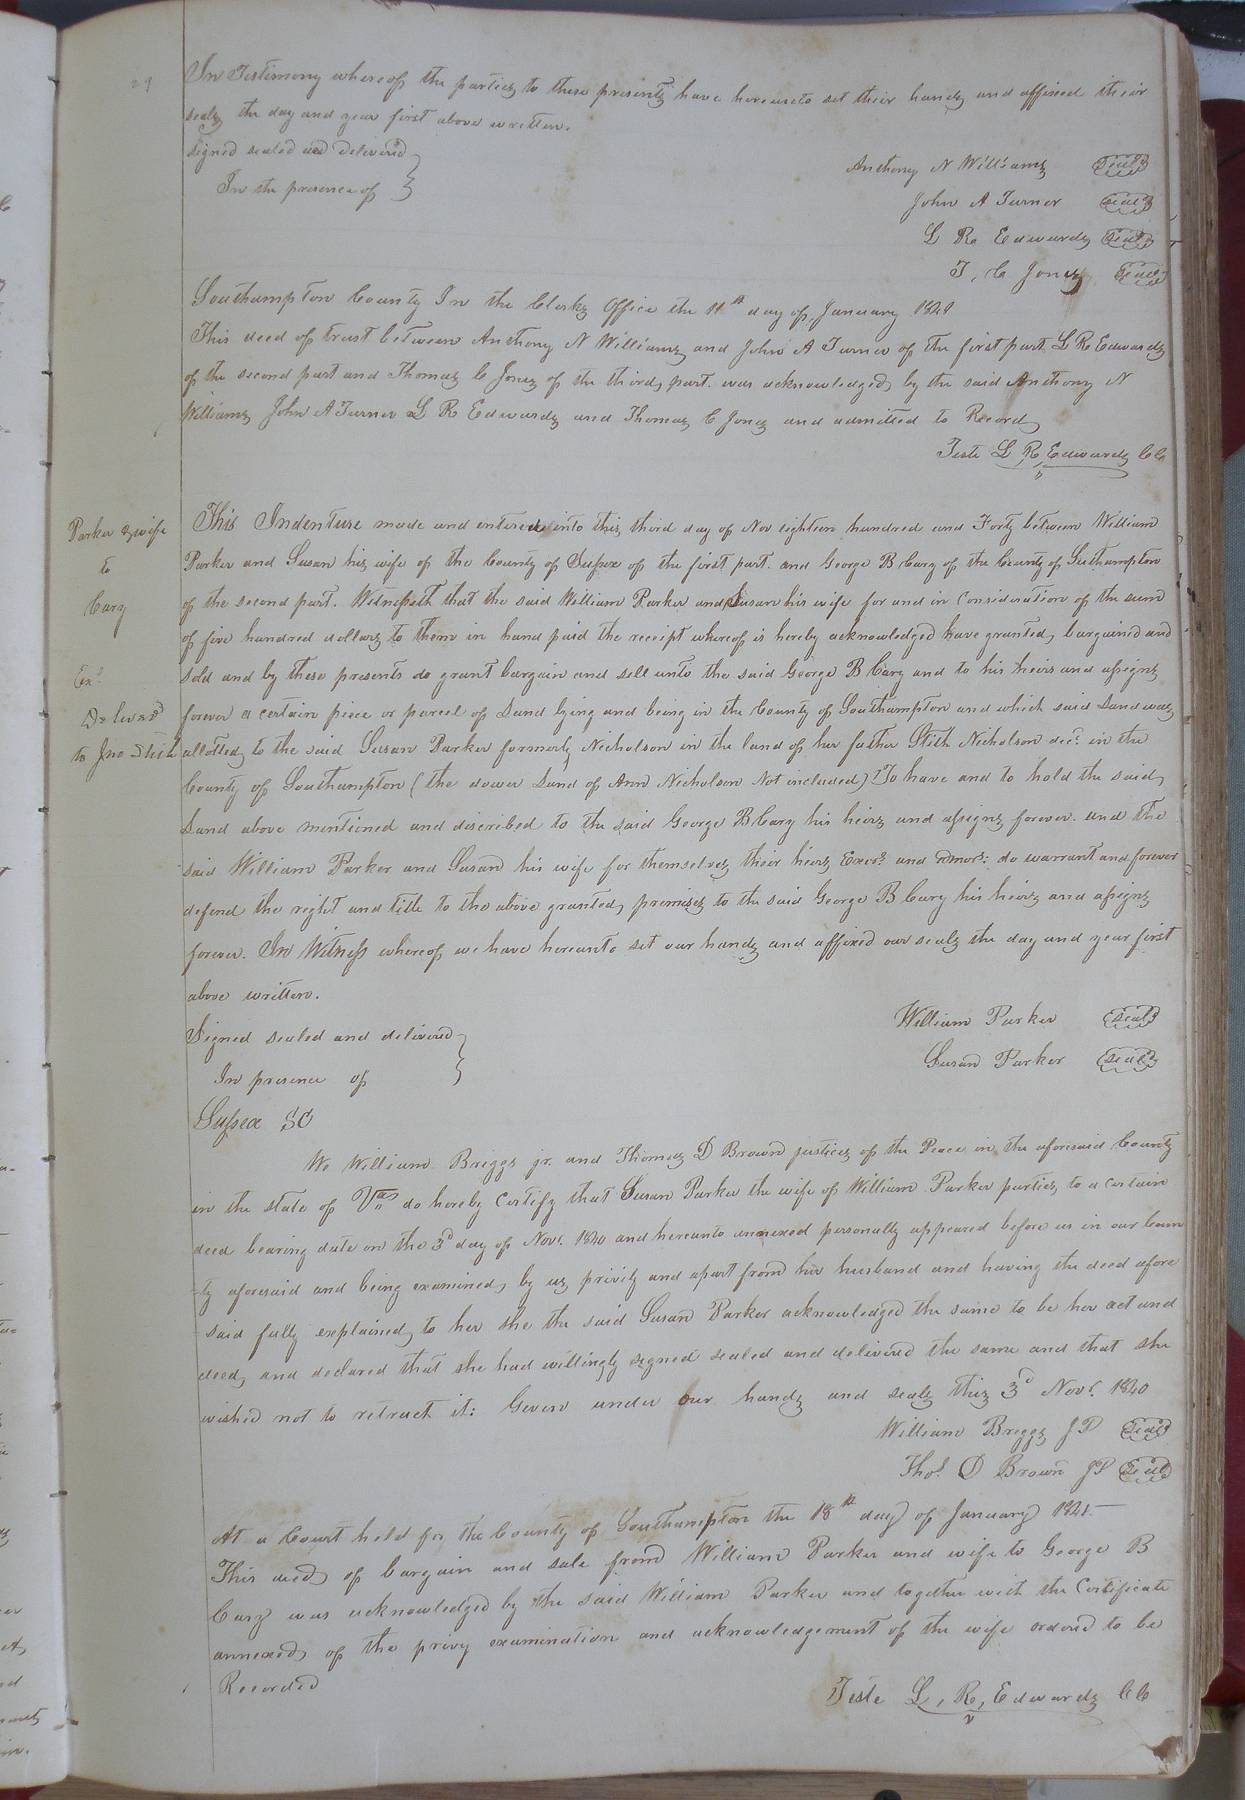 29
In Testimony whereof the parties to these presents have hereunto set their hands and affixed their
seals the day and year first above written.
signed sealed and delivered }
In the presence of }
Anthony N Williams Seal
John A Turner Seal
L R Edwards Seal
T, C Jones Seal
Southampton County In the Clerks Office the 11th day of January 1841
This deed of trust between Anthony N Williams and John A Turner of the first part L R Edwards
of the second part and Thomas C Jones of the third part. was acknowledged by the said Anthony N
Williams John A Turner L R Edwards and Thomas C Jones and admitted to Record
Teste L R, Edwards CC
Parker & wife
to
Cary
Exd
Deliverd
to Jno Stith
This Indenture made and entered into this third day of Nov eighteen hundred and Forty between William
Parker and Susan his wife of the County of Sussex of the first part. and George B Cary of the County of Southampton
of the second part. Witnesseth that the said William Parker and Susan his wife for and in consideration of the sum
of five hundred dollars to them in hand paid the receipt whereof is hereby acknowledged have granted, bargained and
sold and by these presents do grant bargain and sell unto the said George B Cary and to his heirs and assigns
forever a certain piece or parcel of Land lying and being in the County of Southampton and which said Land was
allotted to the said Susan Parker formerly Nicholson in the land of her father Stith Nicholson decd. in the
County of Southampton (the dower Land of Ann Nicholson Not included) To have and to hold the said
Land above mentioned and discribed to the said George B Cary his heirs and assigns forever. and the
said William Parker and Susan his wife for themselves their heirs Execrs and admors: do warrant and forever
defend the right and title to the above granted premises to the said George B Cary his heirs and assigns
forever. In Witness whereof we have hereunto set our hands and affixed our seals the day and year first
above written.
Signed sealed and delivered }
In presence of }
William Parker Seal
Susan Parker Seal
Sussex SC
We William Briggs jr. and Thomas D Brown justices of the Peace in the aforesaid County
in the state of Va do hereby certify that Susan Parker the wife of William Parker parties to a certain
deed bearing date on the 3d day of Novr. 1840 and hereunto annexed personally appeared before us in our coun
=ty aforesaid and being examined by us privily and apart from her husband and having the deed afore
=said fully explained to her she the said Susan Parker acknowledged the same to be her act and
deed, and declared that she had willingly signed sealed and delivered the same and that she
wished not to retract it: Given under our hands and seals this 3d Novr. 1840
William Briggs JP Seal
Thos. D Brown JP Seal
At a Court held for the County of Southampton the 18th day of January 1841
This deed of bargain and sale from William Parker and wife to George B
Cary was acknowledged by the said William Parker and together with the Certificate
annexed of the privy examination and acknowledgement of the wife ordered to be
Recorded
Teste L, R, Edwards CC